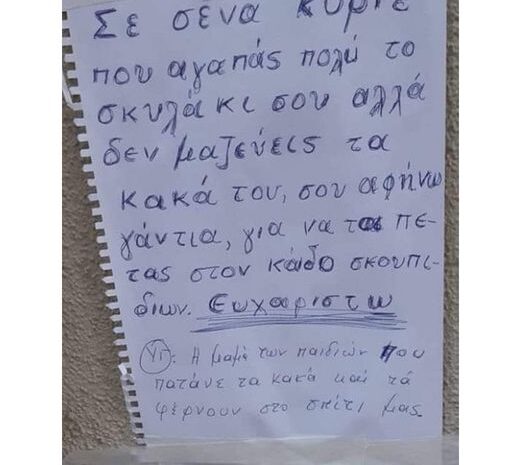 Σε σένα κύριε
που αγαπάς πολύ το
σκυλάκι σου αλλά
δεν μαζεύεις τα
κακά του, σου αφήνω
γάντια, για να τα πε-
τας στον κάδο σκουπι-
διων. Ευχαριστω
ΥΓ: Η μαμά των παιδιών που
πατάνε τα κακά και τά
φέρνουν στο σπίτι μας